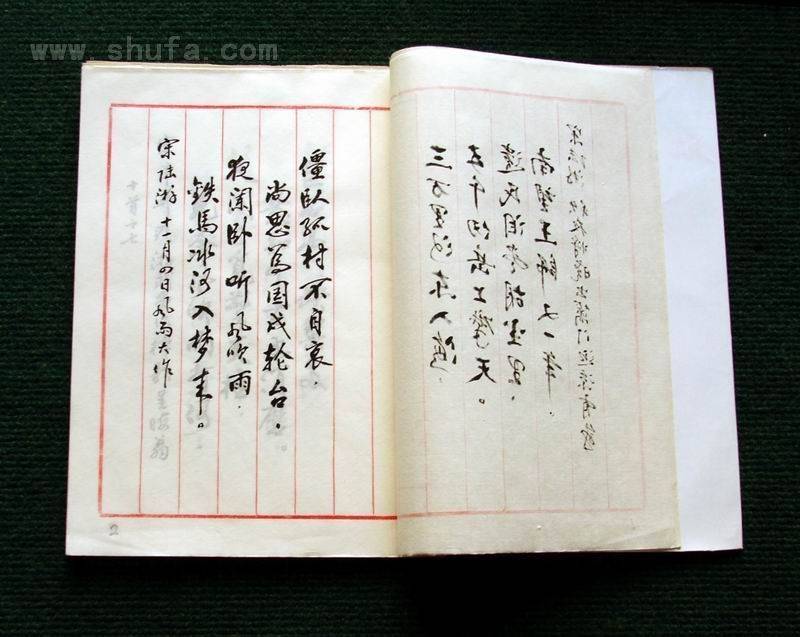 www.shufa.com
三万里河东入海.
五千仞岳上摩天。
遗民泪尽胡尘里.
南望王师又一年.
宋陆游 秋夜将晓出篱门迎凉有感
僵臥孤村不自哀.
尚思為国戍轮台.
夜闌卧听风吹雨.
鉄馬冰河入梦来。
宋陆游 十一月四日风雨大作
2